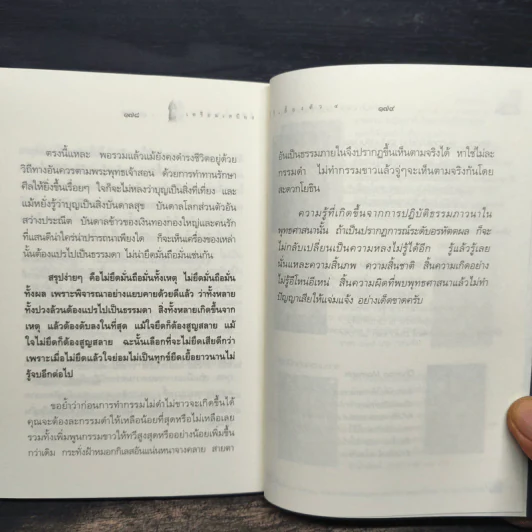 ๑๗๘
ตรงนี้แหละ พอรวมแล้วแม้ยังคงดำรงชีวิตอยู่ด้วย
วิถีทางอันควรตามพระพุทธเจ้าสอน ด้วยการทำทานรักษา
ศีลให้ยิ่งขึ้นเรื่อยๆ ใจก็จะไม่หลงว่าบุญเป็นสิ่งที่เที่ยง และ
แม้หยั่งรู้ว่าบุญเป็นสิ่งบันดาลสุข บันดาลโลกส่วนตัวอัน
สว่างประณีต บันดาลข้าวของเงินทองกองใหญ่และคนรัก
ที่แสนดีน่าใคร่น่าปรารถนาเพียงใด ก็จะเห็นเครื่องของเหล่า
นั้นต้องแปรไปเป็นธรรมดา ไม่น่ายึดมั่นถือมั่นเช่นกัน
สรุปง่ายๆ คือไม่ยึดมั่นถือมั่นทั้งเหตุ ไม่ยึดมั่นถือมั่น
ทั้งผล เพราะพิจารณาอย่างแยบคายด้วยดีแล้ว ว่าทั้งหลาย
ทั้งปวงล้วนต้องแปรไปเป็นธรรมดา สิ่งทั้งหลายเกิดขึ้นจาก
เหตุ แล้วต้องดับลงในที่สุด แม้ใจยึดก็ต้องสูญสลาย แม้
ใจไม่ยึดก็ต้องสูญสลาย ฉะนั้นเลือกที่จะไม่ยึดเสียดีกว่า
เพราะเมื่อไม่ยึดแล้วใจย่อมไม่เป็นทุกข์ยืดเยื้อยาวนานไม่
รู้จบอีกต่อไป
ขอย้ำว่าก่อนการทำกรรมไม่ดำไม่ขาวจะเกิดขึ้นได้
คุณจะต้องละกรรมดำให้เหลือน้อยที่สุดหรือไม่เหลือเลย
รวมทั้งเพิ่มพูนกรรมขาวให้ทวีสูงสุดหรืออย่างน้อยเพิ่มขึ้น
กว่าเดิม กระทั่งฝ้าหมอกกิเลสอันแน่นหนาจางคลาย สายตา
๑๗๙
อันเป็นธรรมภายในจึงปรากฏขึ้นเห็นตามจริงได้ หาใช่ไม่ละ
กรรมดำ ไม่ทำกรรมขาวแล้วจู่ๆจะเห็นตามจริงกันโดย
สะดวกโยธิน
ความรู้ที่เกิดขึ้นจากการปฏิบัติธรรมภาวนาใน
พุทธศาสนานั้น ถ้าเป็นปรากฏการณ์ระดับอรหัตตผล ก็จะ
ไม่กลับเปลี่ยนเป็นความหลงไม่รู้ได้อีก รู้แล้วรู้เลย
นั่นแหละความสิ้นภพ ความสิ้นชาติ สิ้นความเกิดอย่าง
ไม่รู้อีโหน่อีเหน่ สิ้นความผิดที่พบพุทธศาสนาแล้วไม่ทำ
ปัญญาเสียให้แจ่มแจ้ง อย่างเด็ดขาดครับ